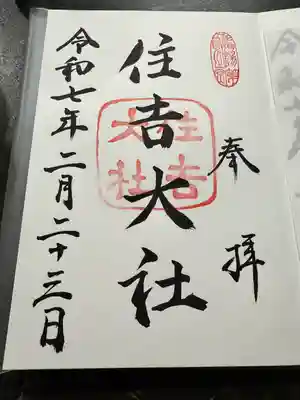 奉拝
住吉大社
住吉
大社
令和七年二月二十三日